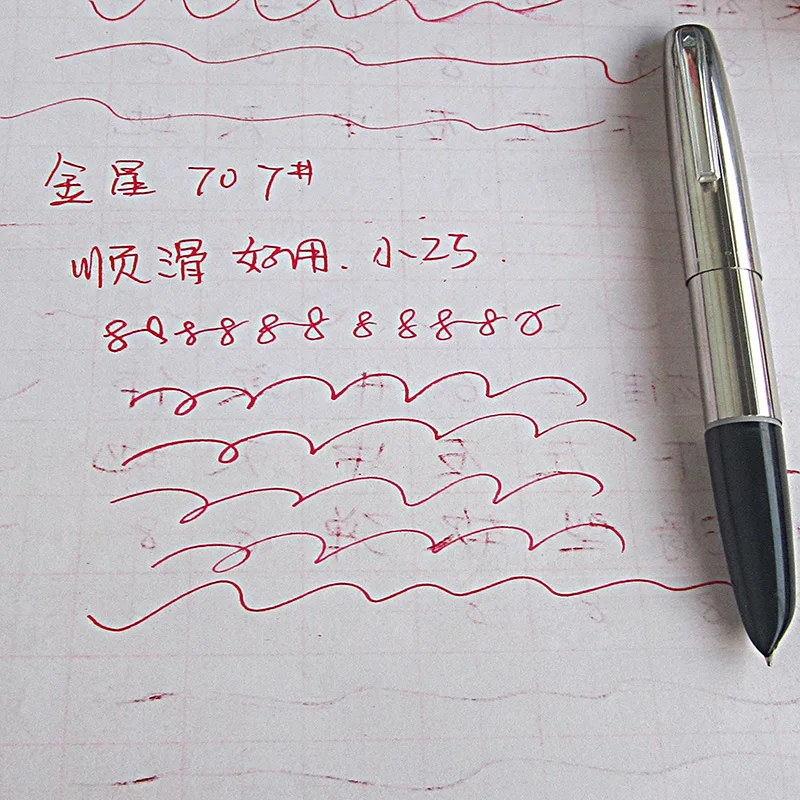 金星 707#
顺滑 好用. 小25.
8 8 8 8 8 8 8 8 8 8 8